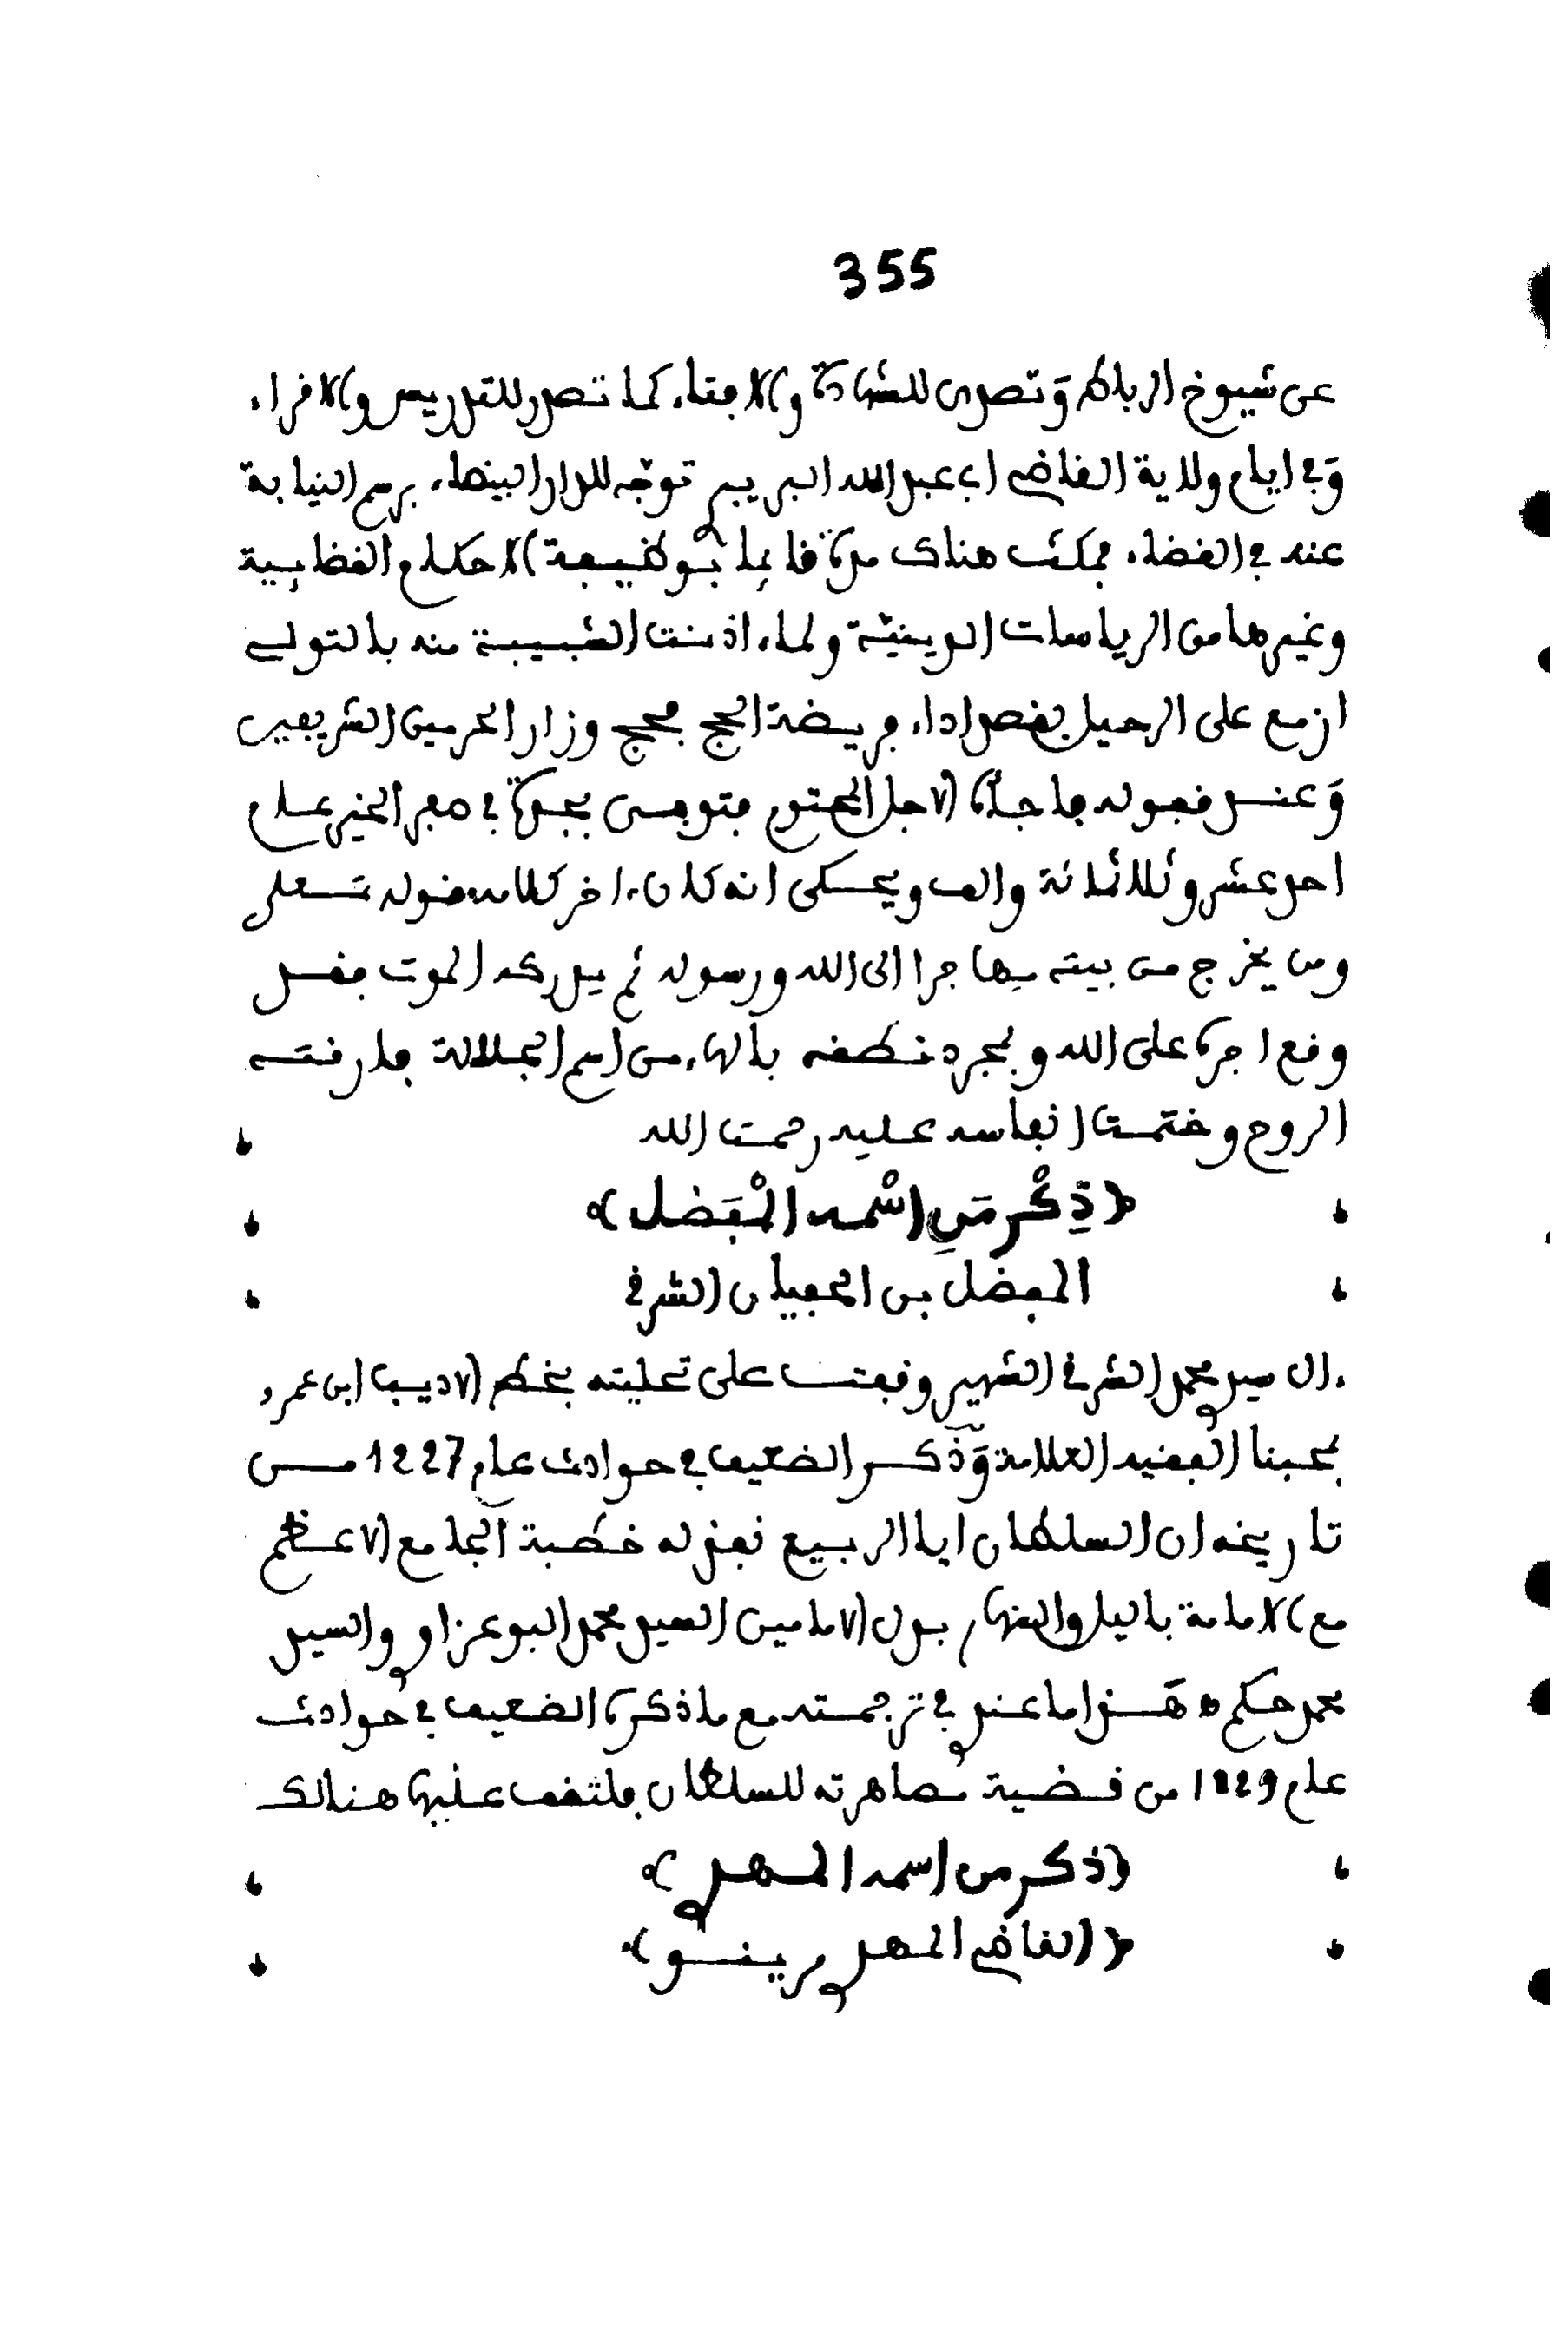 355
عن شيوخ الرباط وتصدى للشهادة والافتاء كما تصدر للتدريس والاقراء
وفى ايام ولاية القاضى ابى عبد الله البريبر توجّه للدار البيضاء برسم النيابة
عنه فى القضاء فمكث هناك مدة قائما بوظيفة الاحكام القضائية
وغيرها من الرياسات الدينيّة ولما اذنت الشبيبة منه بالتولى
ازمع على الرحيل بقصد اداء فريضة الحج فحج وزار الحرمين الشريفين
وعند قفوله فاجأه الاجل المحتوم فتوفى بجدة فى صفر الخير عام
احد عشر وثلاثمائة والف ويحكى انه كان اخر كلامه قوله تعلى
ومن يخرج من بيته مهاجرا الى الله ورسوله ثم يدركه الموت فقد
وقع اجره على الله وبمجرد نطقه بالهاء من اسم الجلالة فارقته
الروح وختمت انفاسه عليه رحمت الله
﴿ذِكْر مَنِ اسْمه المْفَضل﴾
المفضل بن الجيلان الشرفى
ءال سيدى محمد الشرفى الشهير وقفت على تحليته بخط الاديب ابن عمرو
بمحبنا الفقيه العلامة وَذكر الضعيف فى حوادث عام 1227 من
تاريخه ان السلطان ابا الربيع نفذ له خطبة الجامع الاعظم
مع الامامة باليل والنهار بدل الامامين السيد محمد البوعزاوى والسيد
محمد حكم ه هذا ما عندى فى ترجمته مع ما ذكره الضعيف فى حوادث
عام 1229 من قضية مصاهرته للسلطان فلتقف عليها هنالك
﴿ذكر من اسمه المهدى﴾
﴿القاضى المهدى مرينو﴾